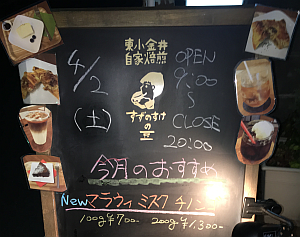 東小金井
自家焙煎
4/2
(土)
すずのすけ
の
豆
OPEN
9:00
S
CLOSE
20:00
今月のおすすめ
Newマラウィ ミスク
100g¥700- 200g¥1,300-